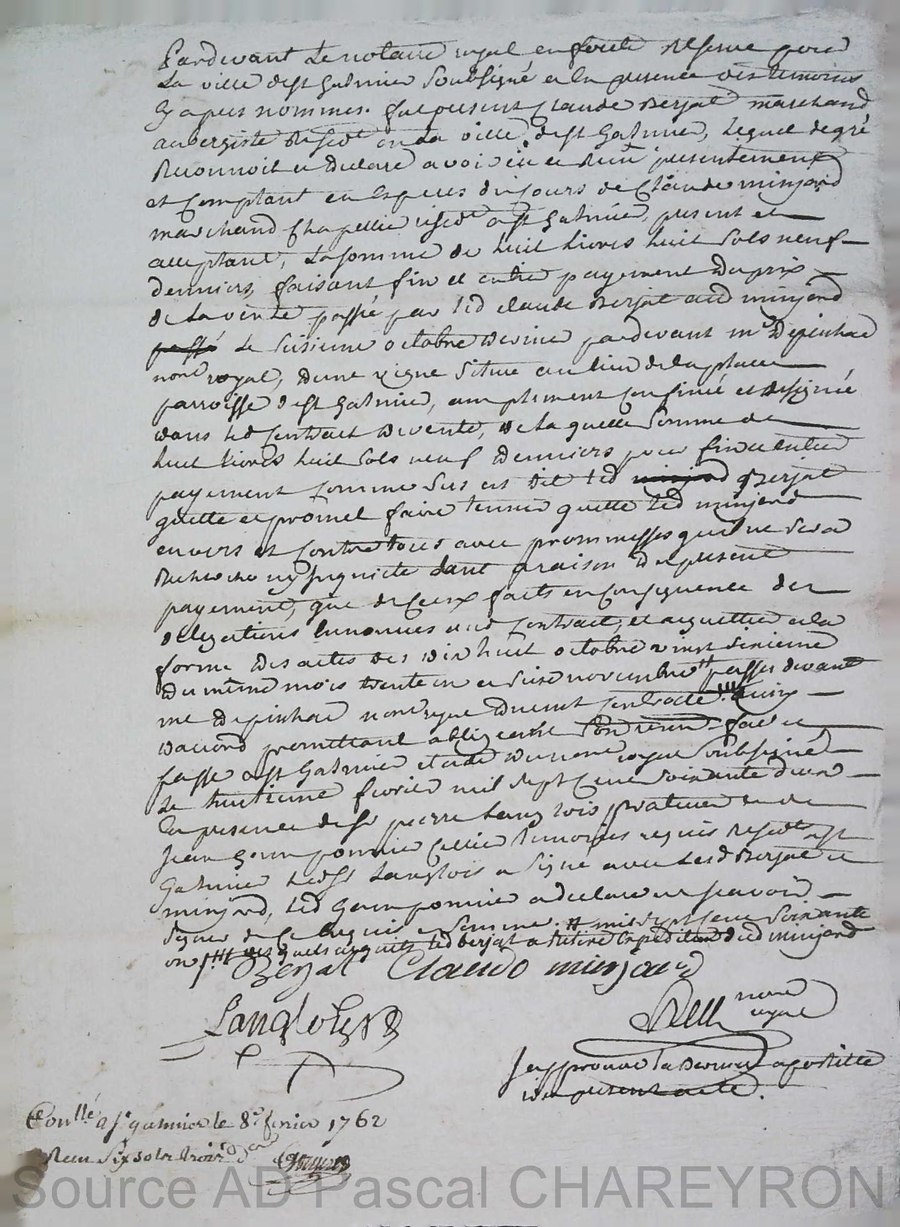 Pardevant Le notaire royal en forêt Reservé pour
La ville de st Galmier Soubsigné et en presence des temoins
Cy apres nommes. fut present Claude Berjat marchand
aubergiste Residt en la ville de st Galmier, Lequel de gré
Reconnoit et declare avoir eu et Reçu presentement
et Comptant en Especes du jours de Claude minjard
marchand Chapellier residt a st Galmier, present et
acceptant, La somme de huit livres huit sols neuf
denniers, faisant fin et entier payement du prix
de La vente passé par led Claude Berjat aud minjard
passé Le sixieme octobre dernier pardevant me Depinhac
nore royal, d'une vigne Situee au lieu de la place
parroisse de st Galmier, amplement Confinée et designée
dans led Contrat de vente, de la quelle Somme de
huit livres huit sols neuf denniers pour fin et entier
payement Comme Sus est dit led minjard Berjat
quitte et promet faire tenir quitte led minjard
envers et Contre tous avec prommesses quil ne Sera
Recherché ny inquieté tant a raison du present
payement, que de Ceux faits en Consequence des
delegations Ennoncés aud Contrat, et acquittés a la
forme des actes des dix huit octobre vingt sixieme
du même mois trente un et Seize novembre passés devant
me Depinhac nore royal
d'accord promettant obligeant fait et
passé a st Galmier etude du nore royal soubsigné
Le huitieme fevrier mil sept Cent Soixante deux
En presence de sr pierre Langlois praticien et de
Jean Gouin pommier Cellier temoins requis Residt a st
Galmier Led sr Langlois a Signé avec Lesd Berjat et
minjard, Led Gouin pommier a declaré ne Scavoir
Signer de Ce Enquis et Sommé. # mil sept Cent Soixante
un ### des quels acquits led Berjat a Retiré Expedition dud minjard
Berjat Claude minjard
Langlois
nore
royal
Japprouve la derniere apostille
du present acte.
Conllé a st galmier le 8e fevrier 1762
Reçu six sols trois den
Source AD Pascal CHAREYRON